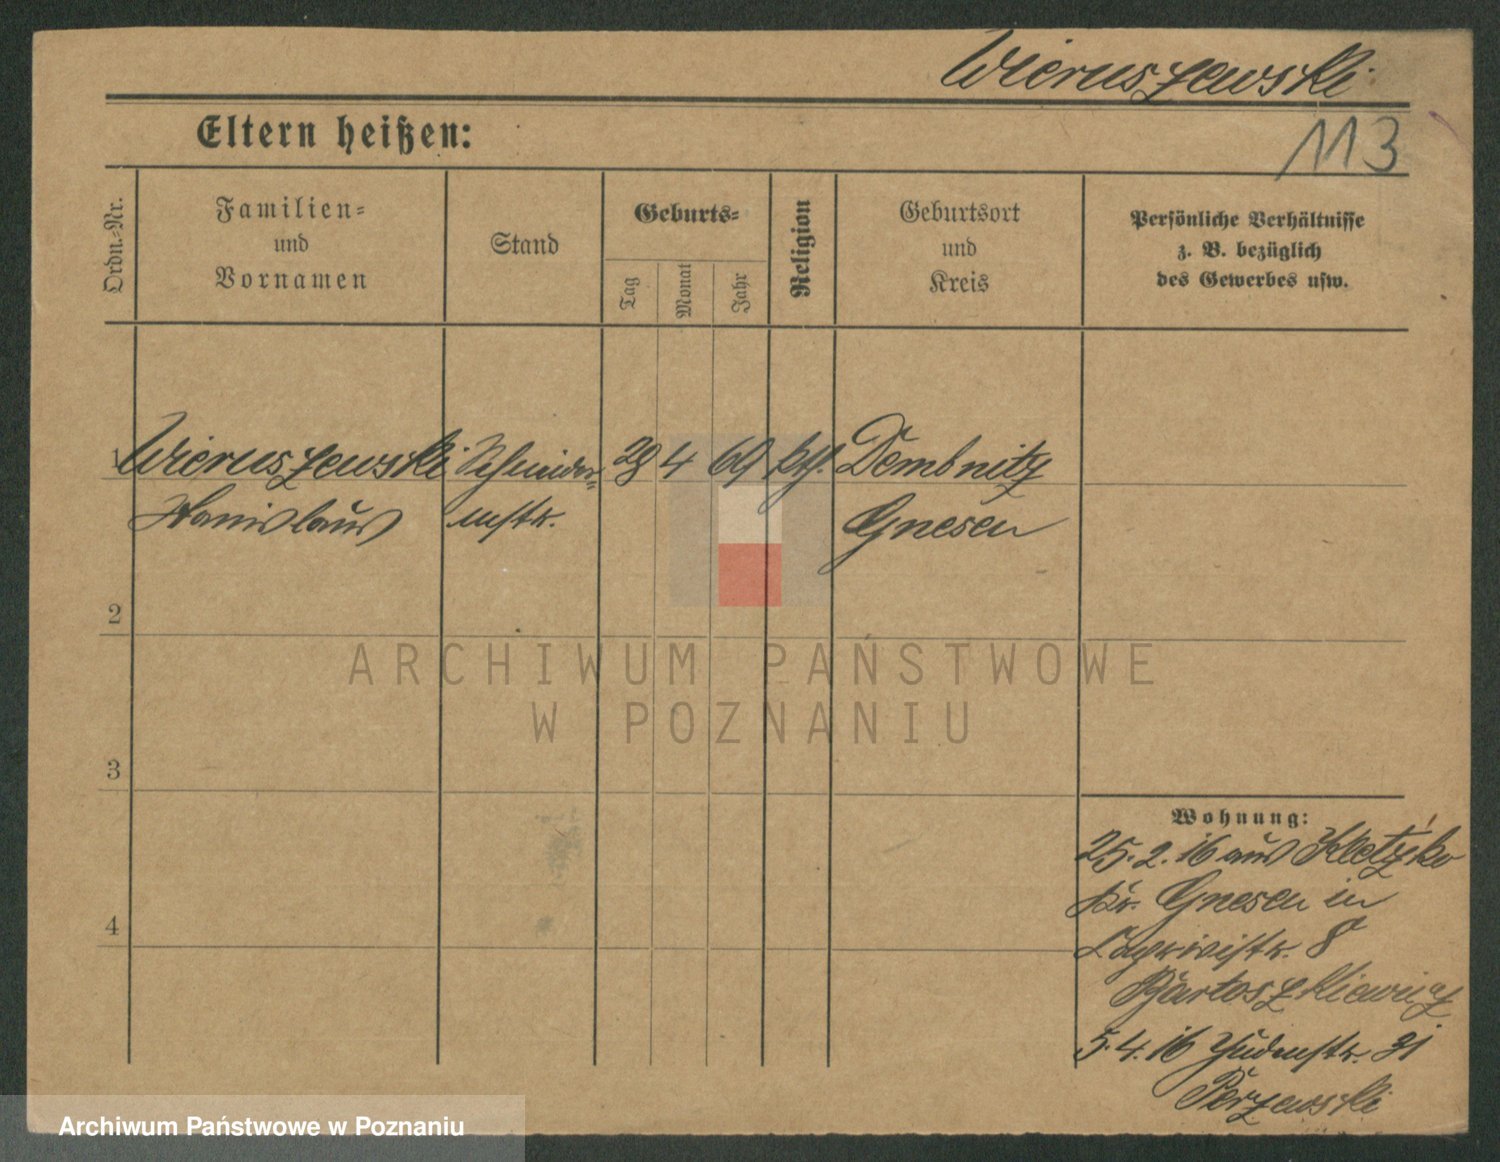 Wieruszewski
113
Eltern heißen:
Ordn.-Nr.
Familien-
und
Vornamen
Stand
Geburts-
Tag
Monat
Jahr
Religion
Geburtsort
und
Kreis
Persönliche Verhältnisse
z. B. bezüglich
des Gewerbes usw.
1 Wieruszewski Schneider- 28 4 69 kth. Dembnitz
Stanislaus mstr. Gnesen
2
3
4
Wohnung:
25. 2. 16 aus Kletzko
Kr. Gnesen in
8
Bartoszkiewicz
5. 4. 16 Judenstr. 31
Perzewski
ARCHIWUM PAŃSTWOWE
W POZNANIU
Archiwum Państwowe w Poznaniu